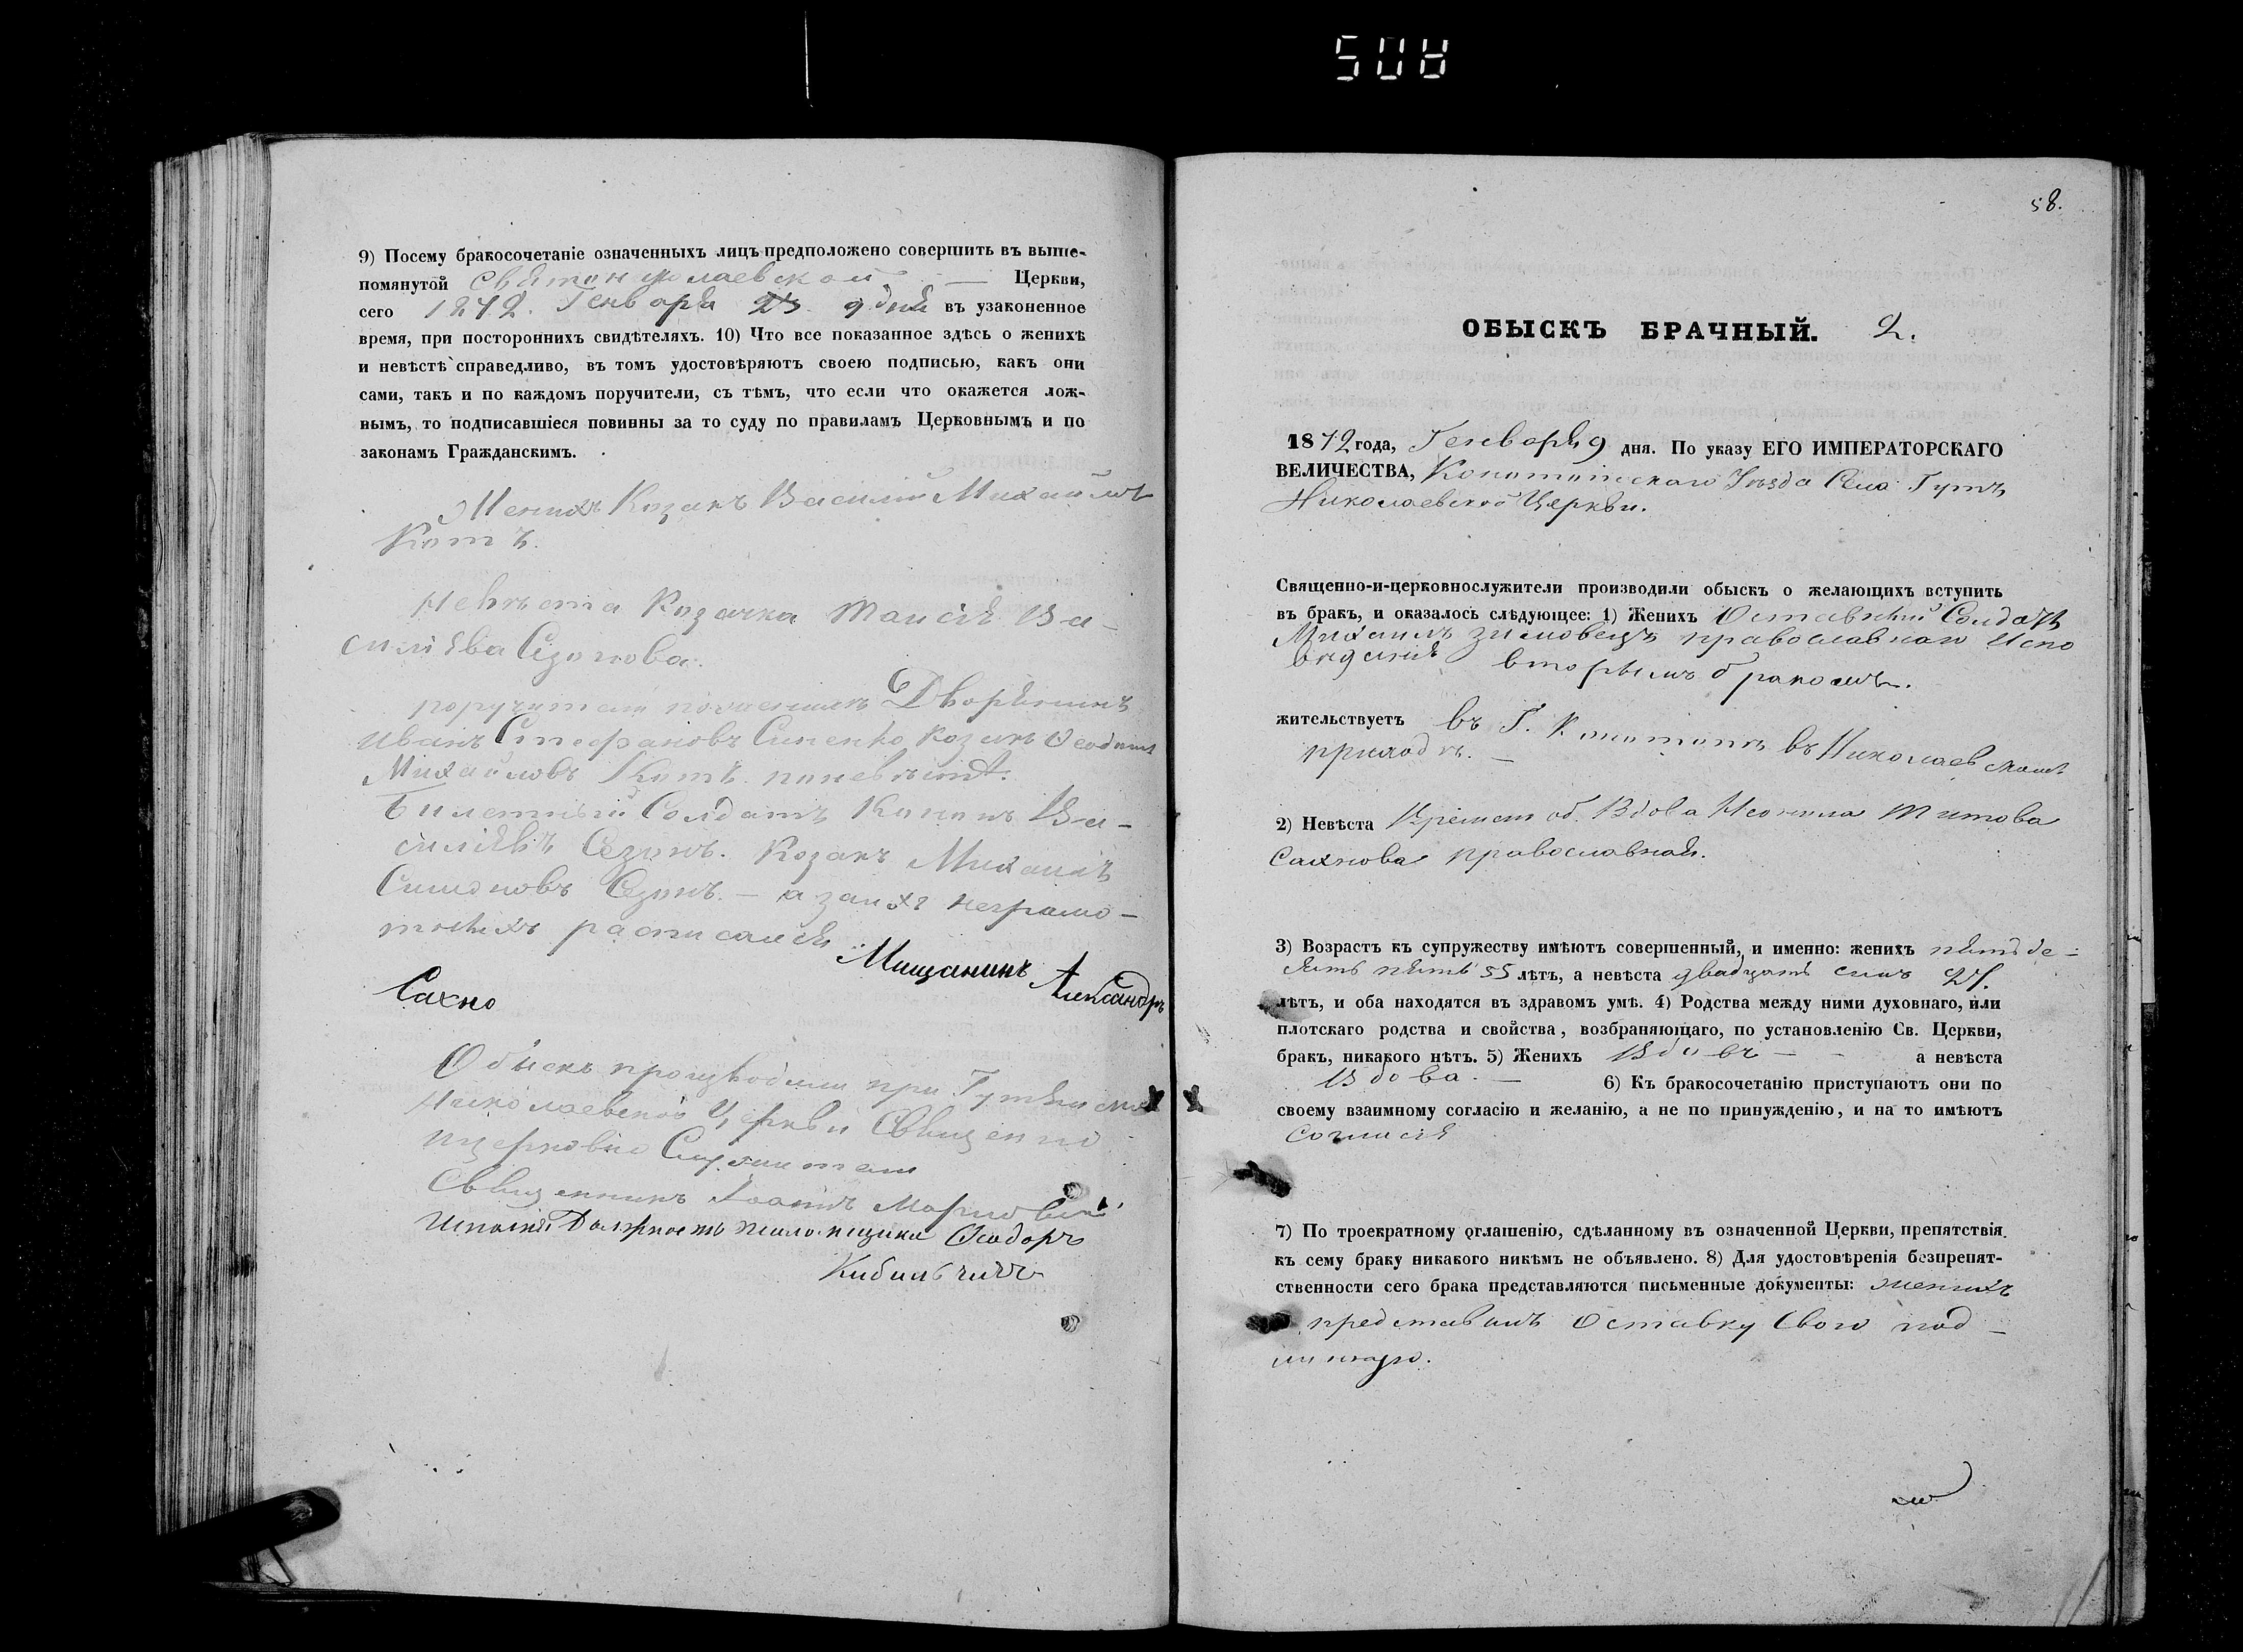 508
9) Посему бракосочетаніе означенныхъ лицъ предположено совершить въ выше-
помянутой Святониколаевской — Церкви,
сего 1872. Генваря 9 дня въ узаконенное
время, при постороннихъ свидѣтеляхъ. 10) Что все показанное здѣсь о женихѣ
и невѣстѣ справедливо, въ томъ удостовѣряютъ своею подписью, какъ они
сами, такъ и по каждомъ поручители, съ тѣмъ, что если что окажется лож-
нымъ, то подписавшіеся повинны за то суду по правиламъ Церковнымъ и по
законамъ Гражданскимъ.
Женихъ Козакъ Василій Михайловъ
Котъ.
Невѣста Козачка Таисія Ва-
силіева Сезонова.
поручители по женихѣ Дворянинъ
Иванъ Стефановъ Синенко Козакъ Ѳеодоръ
Михайловъ Котъ. по невѣстѣ.
Билетный Солдатъ Кононъ Ва-
силіевъ Сезонъ. Козакъ Михаилъ
Симоновъ Сезонъ. — а за ихъ неграмо-
тныхъ расписался Мищанинъ Александръ
Сахно
Обыскъ производили при Гутянской
Николаевской Церкви Священно
и церковно Служители
Священникъ Іоаннъ
Исполняя Должность псаломщика Ѳеодоръ
Кибальчичъ
58.
ОБЫСКЪ БРАЧНЫЙ. 2.
1872 года, Генваря 9 дня. По указу ЕГО ИМПЕРАТОРСКАГО
ВЕЛИЧЕСТВА, Конотопскаго Уѣзда Села Гутъ
Николаевской Церкви.
Священно-и-церковнослужители производили обыскъ о желающихъ вступить
въ бракъ, и оказалось слѣдующее: 1) Женихъ Отставный Солдатъ
Михаилъ Зимовецъ православнаго Испо
ведания вторымъ бракомъ.
жительствуетъ въ Г. Конотопѣ въ Николаевскомъ
приходѣ. —
2) Невѣста Кремен. об. Вдова Неонила Титова
Сахнова православная.
3) Возрастъ къ супружеству имѣютъ совершенный, и именно: женихъ пятьде-
сятъ пять 55 лѣтъ, а невѣста двадцать семь 27.
лѣтъ, и оба находятся въ здравомъ умѣ. 4) Родства между ними духовнаго, или
плотскаго родства и свойства, возбраняющаго, по установленію Св. Церкви,
бракъ, никакого нѣтъ. 5) Женихъ Вдовъ — — а невѣста
Вдова. — 6) Къ бракосочетанію приступаютъ они по
своему взаимному согласію и желанію, а не по принужденію, и на то имѣютъ
согласія
7) По троекратному оглашенію, сдѣланному въ означенной Церкви, препятствія
къ сему браку никакого никѣмъ не объявлено. 8) Для удостовѣренія безпрепят-
ственности сего брака представляются письменные документы: женихъ
представилъ Оставку Свою под-
линную.